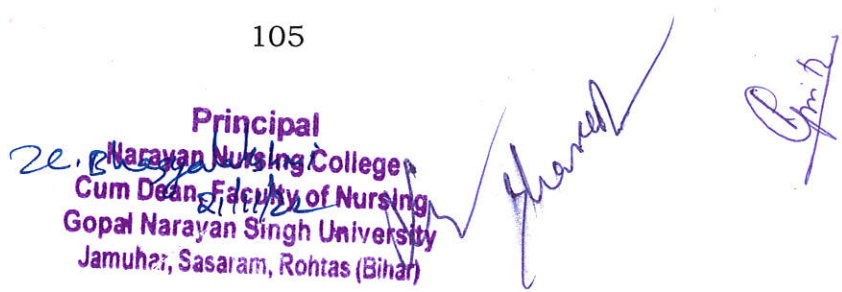 105
Principal
Narayan Nursing College
K. Bhagyalakshmi
Cum Dean, Faculty of Nursing
21/11/22
Gopal Narayan Singh University
Jamuhar, Sasaram, Rohtas (Bihar)